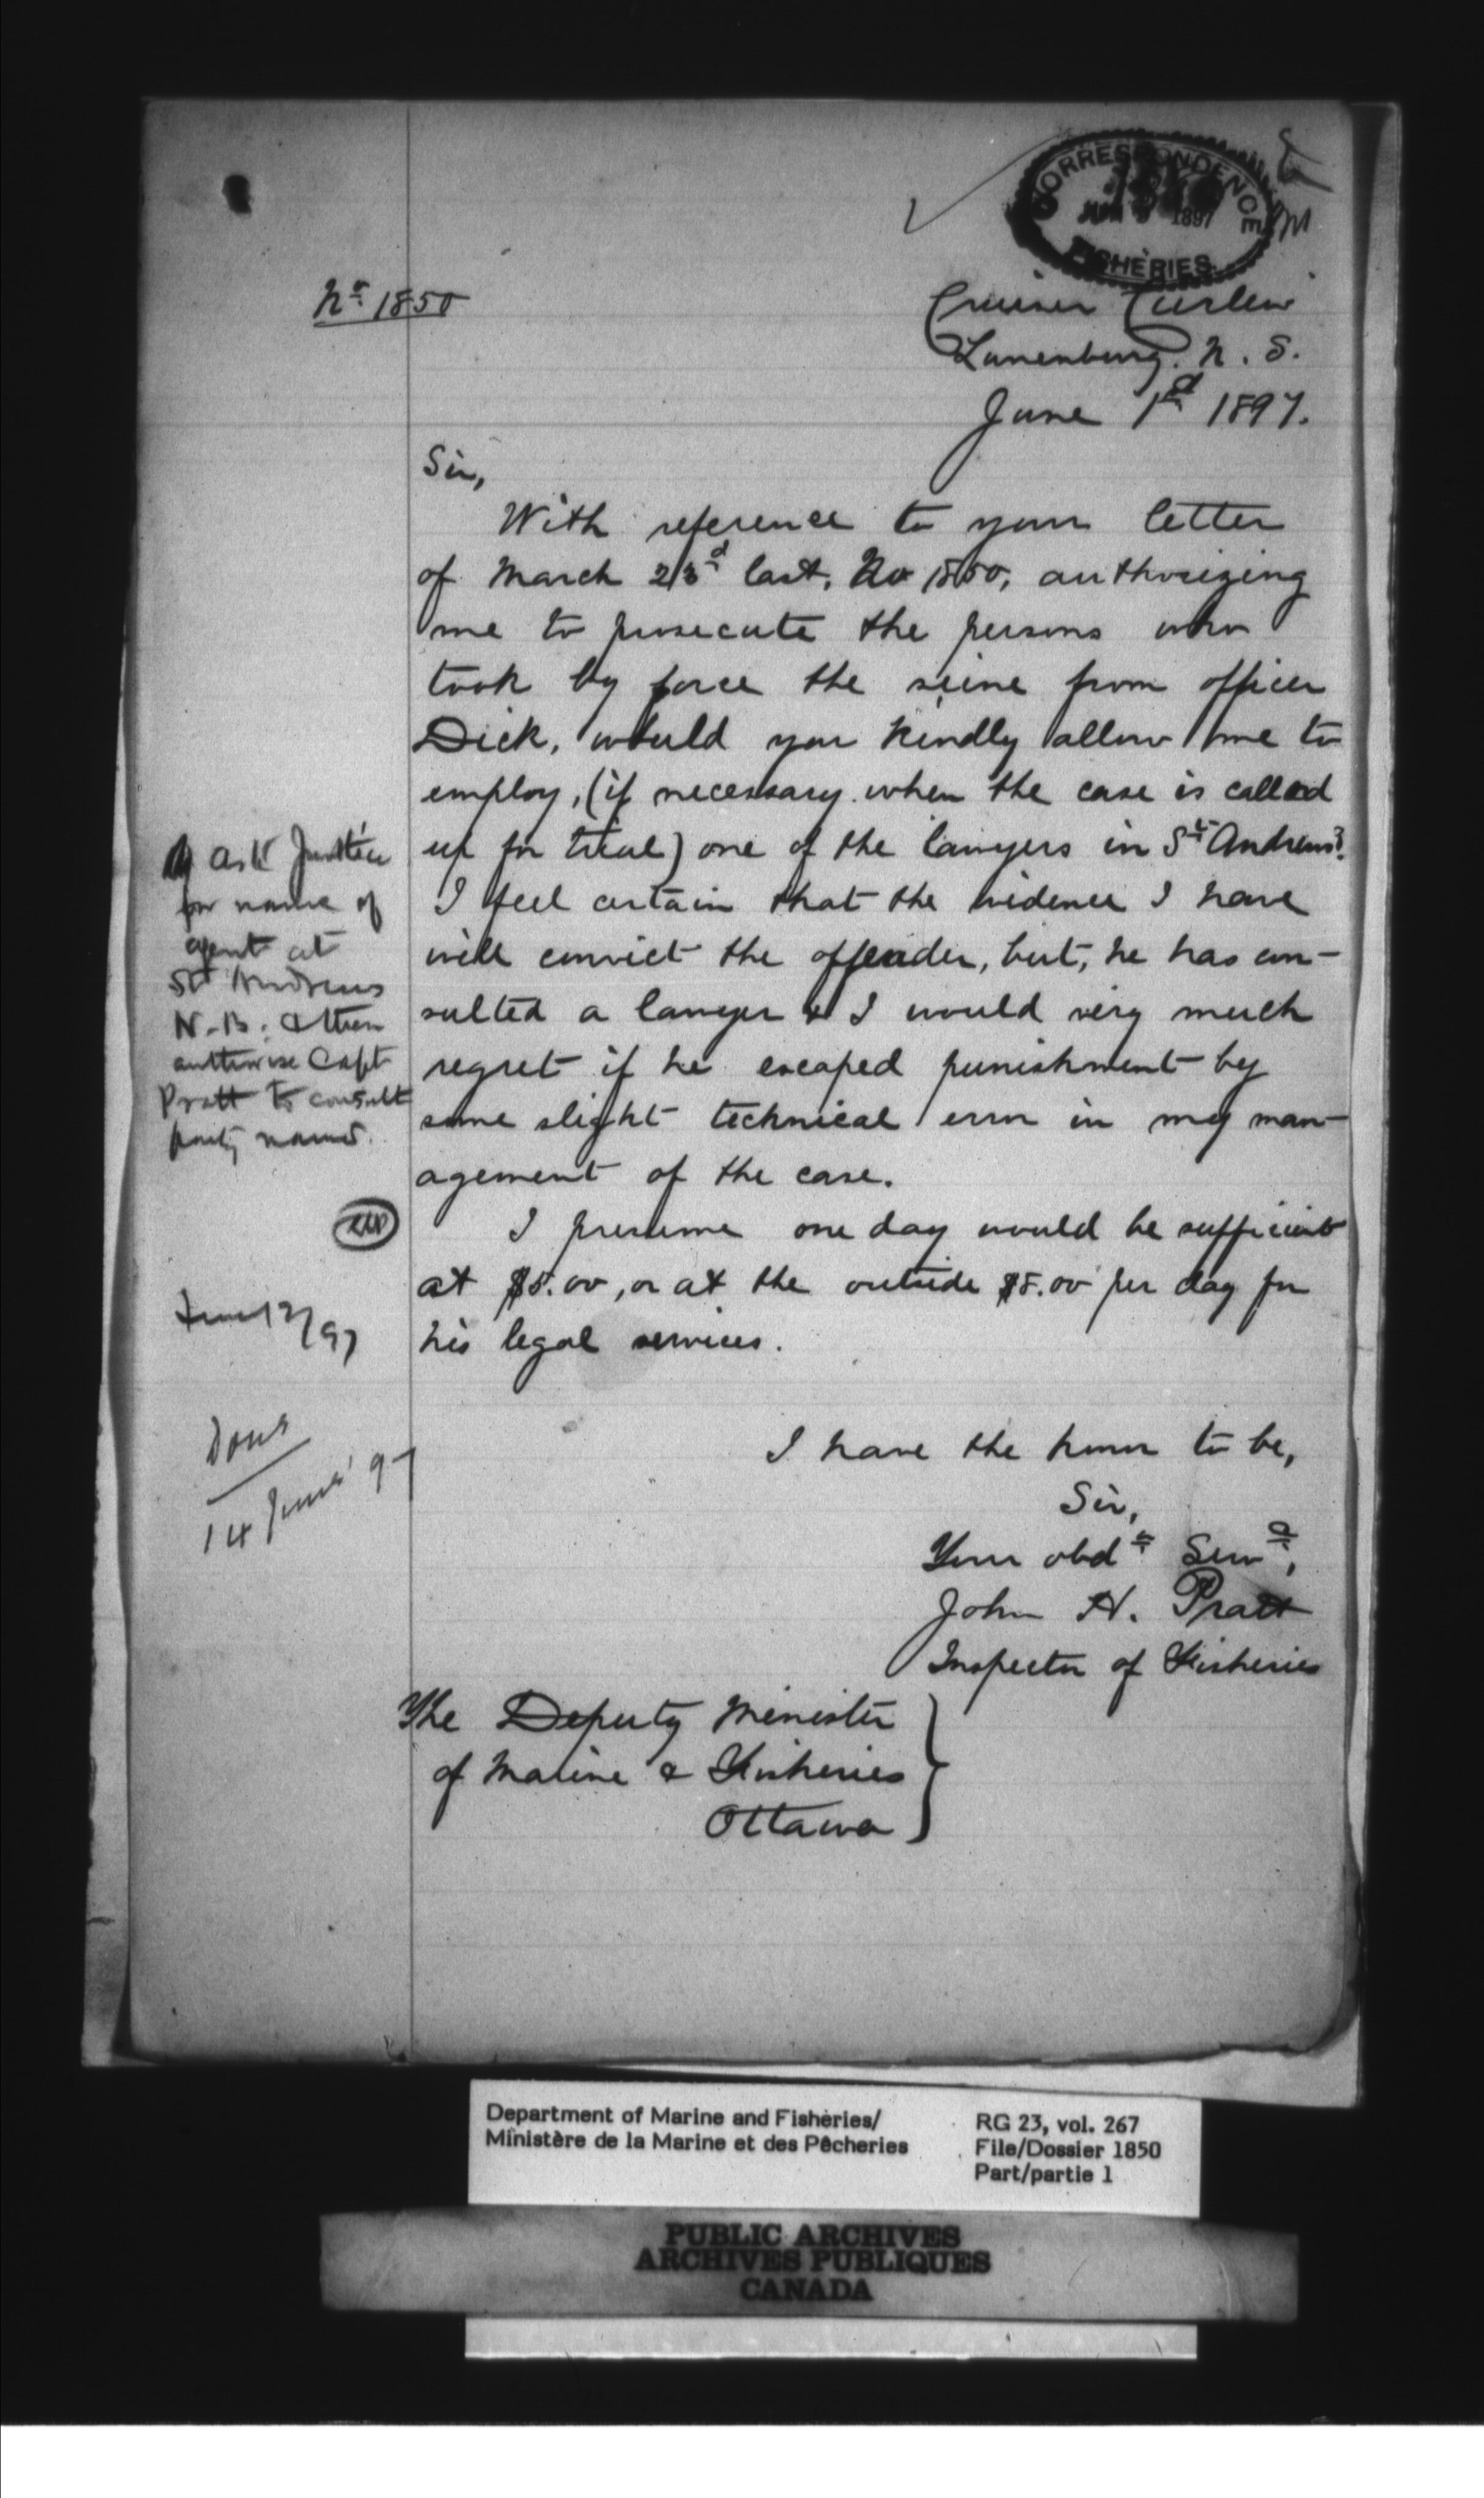 CORRESPONDENCE
1897
FISHERIES.
No 1850
Cruiser Curlew
Lunenburg. N. S.
June 1st 1897.
Sir,
With reference to your letter
of March 23d last, No 1850, authorizing
me to prosecute the persons who
took by force the seine from officer
Dick, would you kindly allow me to
employ, (if necessary when the case is called
up for trial) one of the lawyers in St Andrews?
I feel certain that the evidence I have
will convict the offender, but, he has con-
sulted a lawyer & I would very much
regret if he escaped punishment by
some slight technical error in my man-
agement of the case.
I presume one day would be sufficient
at $5.00, or at the outside $8.00 per day for
his legal services.
I have the honor to be,
Sir,
Your obdt Servt,
John H. Pratt
Inspector of Fisheries
The Deputy Minister
of Marine & Fisheries
Ottawa
ask Justice
for name of
agent at
St Andrews
N.B. & then
authorise Capt
Pratt to consult
party named.
June 12/97
Done
14 June '97
Department of Marine and Fisheries/
Ministère de la Marine et des Pêcheries
RG 23, vol. 267
File/Dossier 1850
Part/partie 1
PUBLIC ARCHIVES
ARCHIVES PUBLIQUES
CANADA